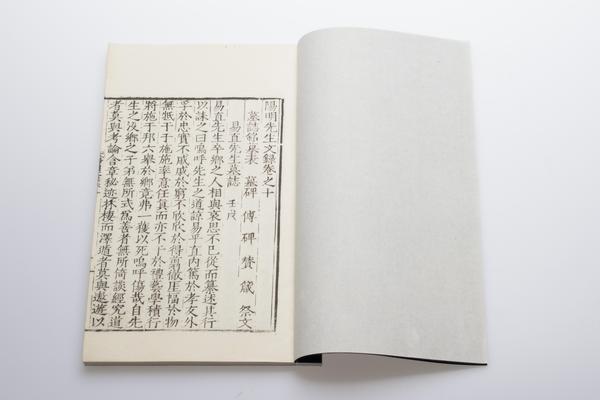 陽明先生文録卷之十
墓誌銘 墓表 墓碑 傳 碑 贊 箴 祭文
易直先生墓誌 壬戌
易直先生卒鄉之人相與哀思不已從而纂述其行
以誄之曰嗚呼先生之道諒易平直内篤於孝友外
孚於忠實不戚戚於窮不欣欣於得剪徹厓幅於物
無牴于于施施率意任真而亦不干於禮藝學積行
將施于邦六舉於鄉竟弗一獲以死嗚呼傷哉自先
生之没鄉之子弟無所式為善者無所倚談經究道
者莫與考論含章秘迹林棲而澤遁者莫與遨遊以